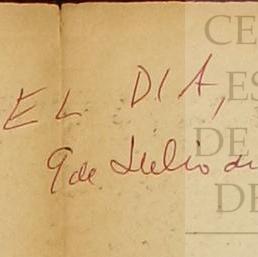 EL DIA,
9 de Julio de
CE
ES
DE
DE